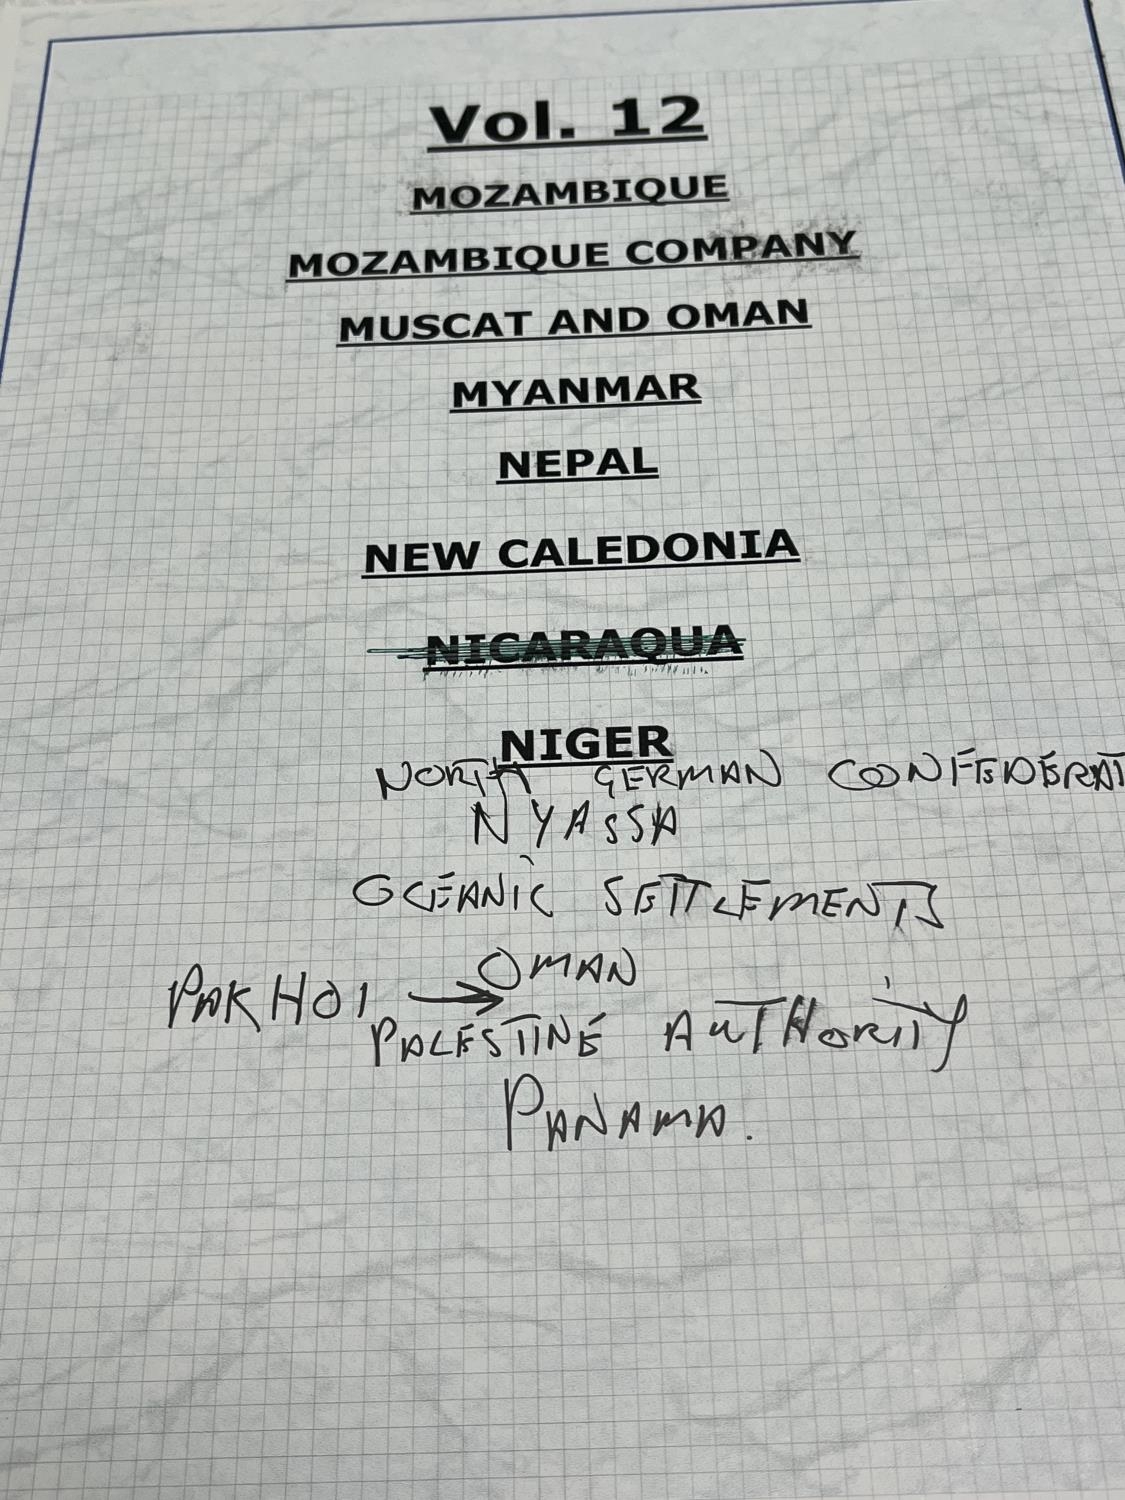 Vol. 12
MOZAMBIQUE
MOZAMBIQUE COMPANY
MUSCAT AND OMAN
MYANMAR
NEPAL
NEW CALEDONIA
NICARAQUA
NIGER
NORTH GERMAN CONFEDERAT
NYASSA
OCEANIC SETTLEMENTS
OMAN
PAKHOI →
PALESTINE AUTHORITY
PANAMA.